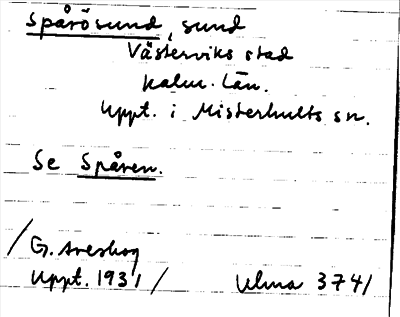 Spårösund, sund
Västerviks stad
Kalm. Län.
Uppt. i Misterhults sn.
Se Spåren.
/G. Areskog
Uppt. 1931/ Ulma 3741